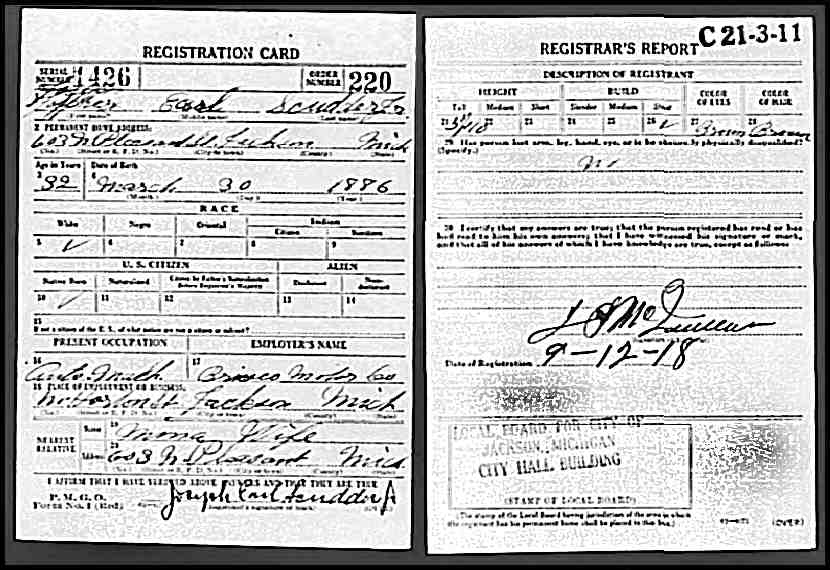 REGISTRATION CARD
SERIAL NUMBER 1426 ORDER NUMBER 220
Earl Scudder Jr
2 PERMANENT HOME ADDRESS:
603 N Pleasant St. Jackson Mich
(No.) (Street or R. F. D. No.) (City or town) (County) (State)
Age in Years Date of Birth
3 32 4 March 30 1886
(Month.) (Day.) (Year.)
RACE
White Negro Oriental Indian
Citizen Noncitizen
5 ✓ 6 7 8 9
U. S. CITIZEN ALIEN
Native Born Naturalized Citizen by Father's Naturalization Before Registrant's Majority Declarant Non-declarant
10 ✓ 11 12 13 14
15
If not a citizen of the U. S., of what nation are you a citizen or subject?
PRESENT OCCUPATION EMPLOYER'S NAME
16 17
Auto Briscoe Motor Co
18 PLACE OF EMPLOYMENT OR BUSINESS:
Jackson Mich
(No.) (Street or R. F. D. No.) (City or town) (County) (State)
NEAREST RELATIVE Name 19 Mona Wife
Address 20 603 N Pleasant Mich
(No.) (Street or R. F. D. No.) (City or town) (County) (State)
I AFFIRM THAT I HAVE VERIFIED ABOVE ANSWERS AND THAT THEY ARE TRUE
P. M. G. O.
Form No. 1 (Red) Joseph Earl Scudder Jr
(Registrant's signature or mark)
REGISTRAR'S REPORT C 21-3-11
DESCRIPTION OF REGISTRANT
HEIGHT BUILD COLOR OF EYES COLOR OF HAIR
Tall Medium Short Slender Medium Stout
21 22 23 24 25 26 ✓ 27 Brown 28 Brown
29 Has person lost arm, leg, hand, eye, or is he obviously physically disqualified?
(Specify.)
No
30 I certify that my answers are true; that the person registered has read or has
had read to him his own answers; that I have witnessed his signature or mark,
and that all of his answers of which I have knowledge are true, except as follows:
Date of Registration 9-12-18
LOCAL BOARD FOR CITY OF
JACKSON, MICHIGAN
CITY HALL BUILDING
(STAMP OF LOCAL BOARD)
(The stamp of the Local Board having jurisdiction of the area in which
the registrant has his permanent home shall be placed in this box.)
(OVER)